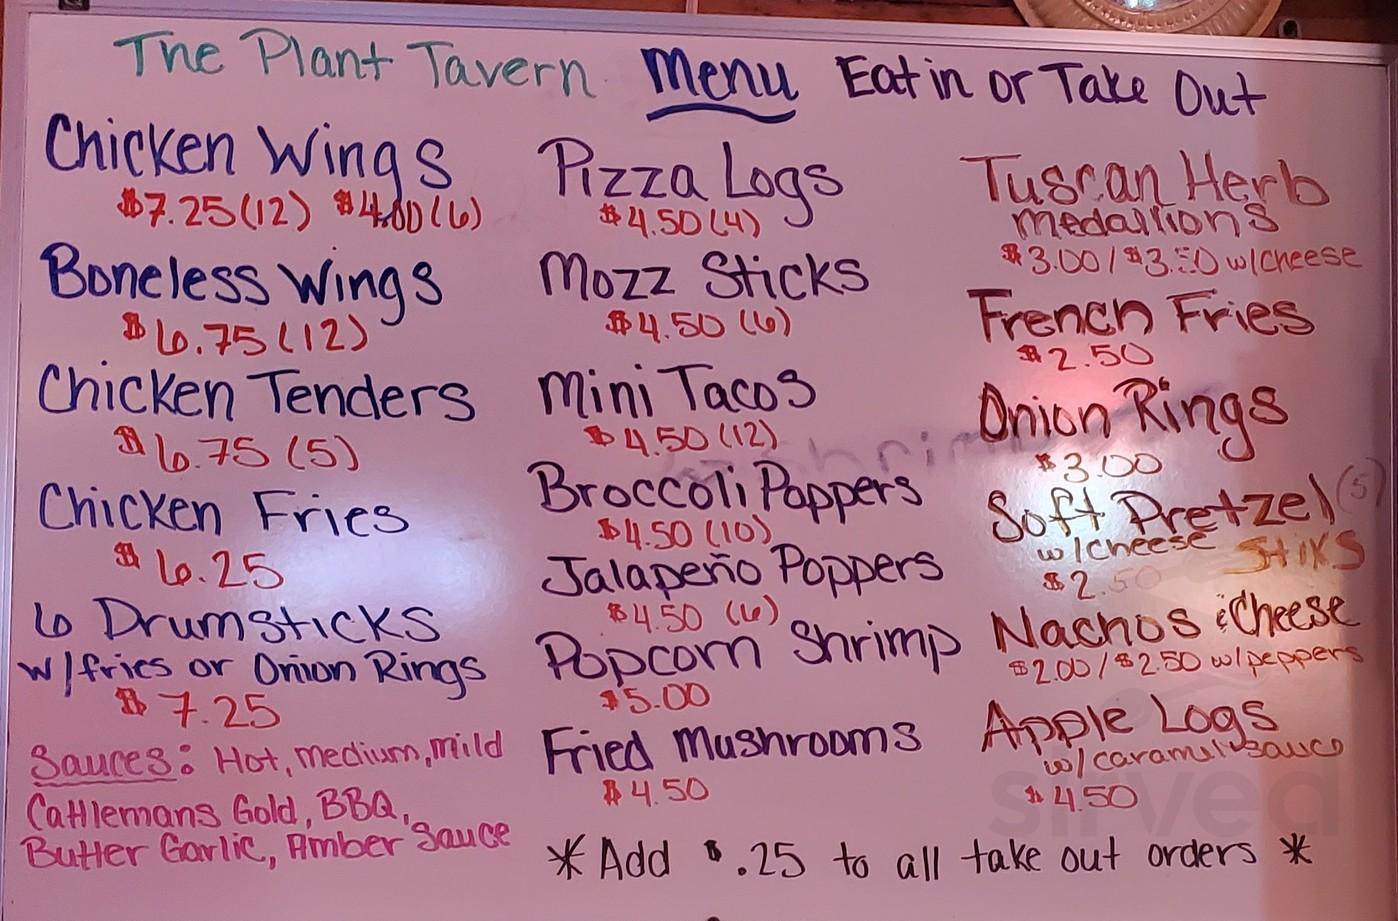 The Plant Tavern Menu Eat in or Take Out
Chicken Wings
$7.25 (12) $4.00 (6)
Boneless Wings
$6.75 (12)
Chicken Tenders
$6.75 (5)
Chicken Fries
$6.25
6 Drumsticks
w/fries or Onion Rings
$7.25
Sauces: Hot, medium, mild
Cattlemans Gold, BBQ,
Butter Garlic, Amber Sauce
Pizza Logs
$4.50 (4)
Mozz Sticks
$4.50 (6)
Mini Tacos
$4.50 (12)
Broccoli Poppers
$4.50 (10)
Jalapeño Poppers
$4.50 (6)
Popcorn Shrimp
$5.00
Fried Mushrooms
$4.50
Tuscan Herb
medallions
$3.00 / $3.50 w/cheese
French Fries
$2.50
Onion Rings
$3.00
Soft Pretzel (5)
w/cheese Stiks
$2.50
Nachos & Cheese
$2.00 / $2.50 w/peppers
Apple Logs
w/caramel sauce
$4.50
*Add $.25 to all take out orders *
sirved